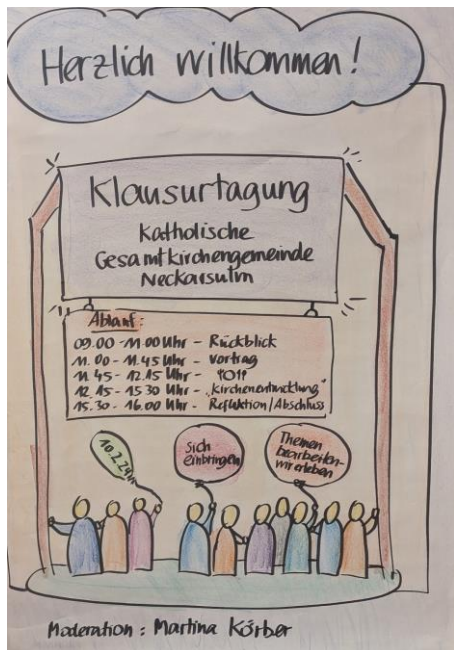 Herzlich willkommen!
Klausurtagung
Katholische
Gesamtkirchengemeinde
Neckarsulm
Ablauf:
09.00 - 11.00 Uhr - Rückblick
11.00 - 11.45 Uhr - Vortrag
11.45 - 12.15 Uhr -
12.15 - 15.30 Uhr - „Kirchenentwicklung"
15.30 - 16.00 Uhr - Reflektion/Abschluss
10.2.24
Sich
einbringen
Themen
bearbeiten-
wir erleben
Moderation: Martina Körber